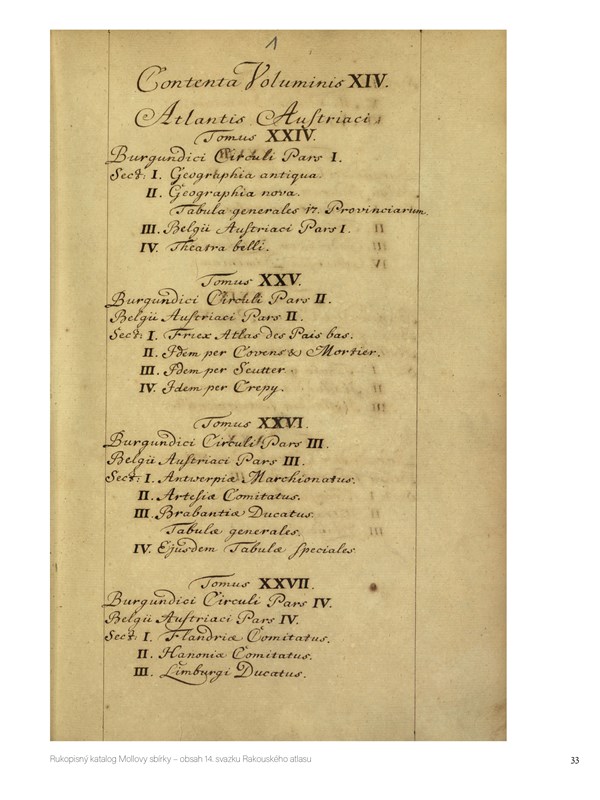 1
Contenta Voluminis XIV.
Atlantis Austriaci
Tomus XXIV.
Burgundici Circuli Pars I.
Sect: I. Geographia antiqua.
II. Geographia nova.
Tabula generales 17. Provinciarum.
III. Belgii Austriaci Pars I.
IV. Theatra belli.
Tomus XXV.
Burgundici Circuli Pars II.
Belgii Austriaci Pars II.
Sect: I. Friex Atlas des Pais bas.
II. Idem per Covens & Mortier.
III. Idem per Seutter.
IV. Idem per Crepy.
Tomus XXVI.
Burgundici Circuli Pars III.
Belgii Austriaci Pars III.
Sect: I. Antwerpiæ Marchionatus.
II. Artesiæ Comitatus.
III. Brabantiæ Ducatus.
Tabulæ generales.
IV. Ejusdem Tabulæ speciales
Tomus XXVII.
Burgundici Circuli Pars IV.
Belgii Austriaci Pars IV.
Sect: I. Flandriæ Comitatus.
II. Hanoniæ Comitatus.
III. Limburgi Ducatus.
Rukopisný katalog Mollovy sbírky – obsah 14. svazku Rakouského atlasu
33